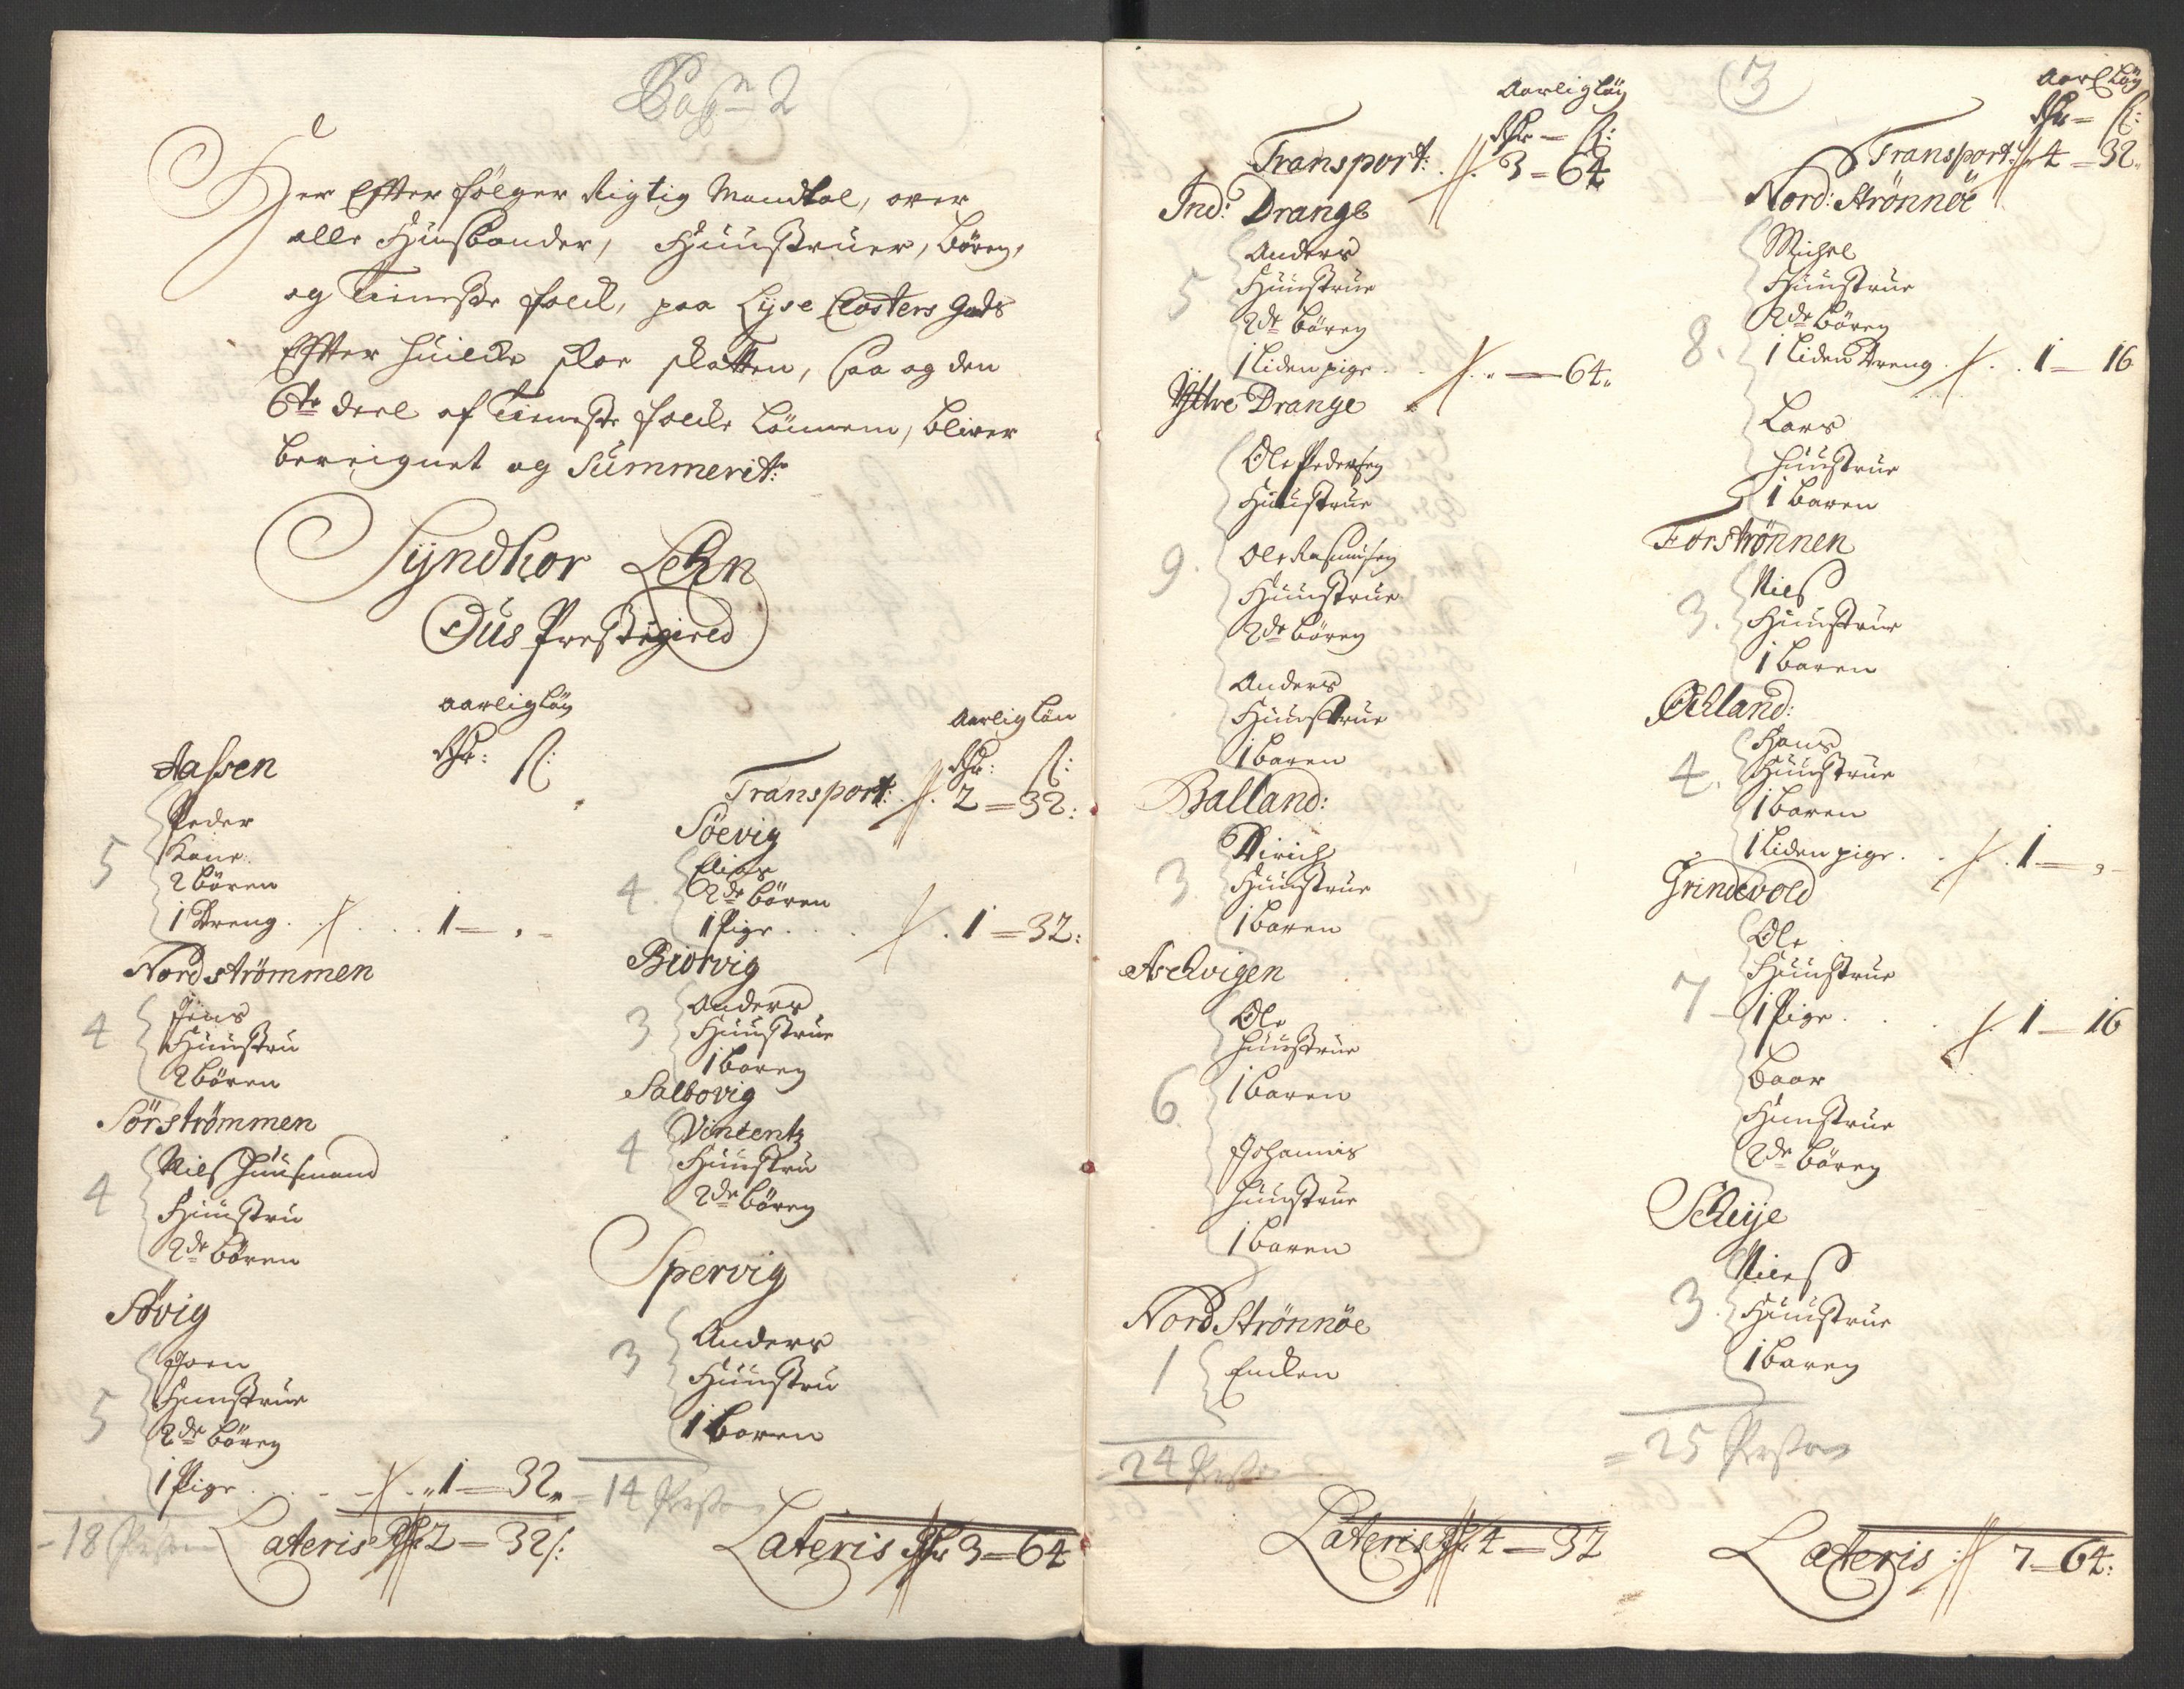 Pag n 2
Her Efter følger Rigtig Mandtal, over
alle Huusbonder, Huustruer, Børen,
og Tieneste folck, paa Lyse Closters Gods
Efter huilcke skar skatten, saa og den
6te deel af Tieneste folcks Lønnem, bliver
bereignet og Summerit:
Syndhor Lehn
Øus Prestegield
aarlig Løn
Rdr: ß:
Aassen
5
Peder
Kone
2 børen
1 Dreng . . 1 = „ -
Nordstrømmen
4
Jens
Huustru
2 børen
Sørstrømmen
4
Niels Huusmand
Huustru
2de børen
Søvig
5
Joen
Huustrue
2de børen
1 Pige . . . 1 = 32 „
- 18 Person
Lateris Rdr 2 = 32 ß:
Aarlig Løn
Rdr: ß:
Transport: 2 = 32:
Søevig
4.
Elias
2de børen
1 Pige . . . 1 = 32:
Biørvig
3
Anders
Huustrue
1 baren
Salbovig
4
Vincentz
Huustru
2de børen
Spervig
3
Anders
Huustru
1 baren
= 14 Person
Lateris Rdr 3 = 64
Aarlig Løn
Rdr = ß:
Transport: . 3 = 64
Ind: Drange
5
Anders
Huustrue
2de børen
1 Liden pige . . . = 64 „
Yttre Drange
9.
Ole Pedersen
Huustrue
Ole Rasmusen
Huustrue
2de børen
Anders
Huustrue
1 baren
Balland:
3
Dirich
Huustrue
1 baren
Aschvigen
6
Ole
Huustrue
1 baren
Johannis
Huustrue
1 baren
Nord Strønnøe
1
Encken
= 24 Persn
Lateris Rdr 4 = 32
3
Aarl Løn
Rdr = ß:
Transport: 4 = 32 „
Nord: Strønnøe
8.
Michel
Huustrue
2de børen
1 Liden Dreng . . . 1 = 16
Lars
Huustrue
1 baren
Forstrønnen
3.
Niels
Huustrue
1 baren
Øchland:
4.
Hans
Huustrue
1 baren
1 Liden pige . . . 1 = „ -
Grindevold
7 -
Ole
Huustrue
1 Pige . . . 1 = 16
Baar
Huustrue
2de børen
Scheye
3.
Niels
Huustrue
1 baren
= 25 Person
Lateris: 7 = 64: